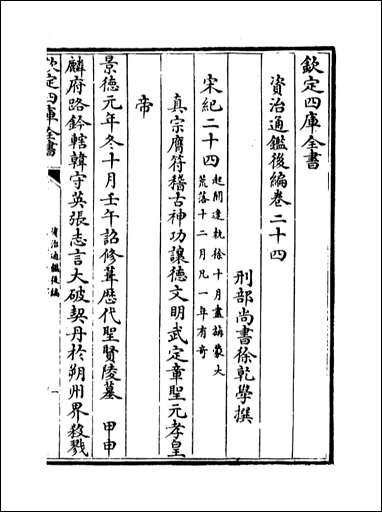 欽定四庫全書
資治通鑑後編卷二十四
刑部尚書徐乾學撰
宋紀二十四 起閼逢執徐十月盡旃蒙大
荒落十二月凡一年有奇
真宗膺符稽古神功讓德文明武定章聖元孝皇
帝
景德元年冬十月壬午詔修葺歷代聖賢陵墓 甲申
麟府路鈐轄韓守英張志言大破契丹於朔州界殺戮
欽定四庫全書
資治通鑑後編
一